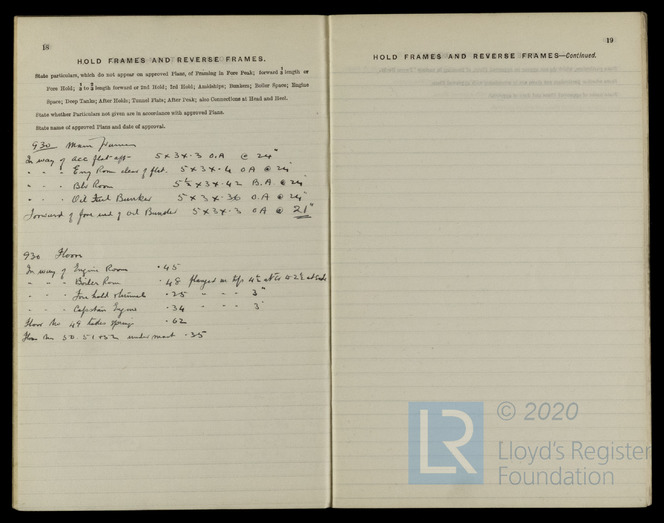 18
HOLD FRAMES AND REVERSE FRAMES.
State particulars, which do not appear on approved Plans, of Framing in Fore Peak; forward ½ length or
Fore Hold; ½ to ¾ length forward or 2nd Hold; 3rd Hold; Amidships; Bunkers; Boiler Space; Engine
Space; Deep Tanks; After Holds; Tunnel Flats; After Peak; also Connections at Head and Heel.
State whether Particulars not given are in accordance with approved Plans.
State name of approved Plans and date of approval.
930 Main Frames
In way of acc flat aft - 5 × 3 × .3 O.A @ 24"
" " " Eng Room clear of flat. 5 × 3 × .4 O A @ 24"
" " " Blr Room 5½ × 3 × .42 B.A @ 24"
" " " Oil Fuel Bunker 5 × 3 × .36 O.A @ 24"
Forward of fore end of Oil Bunker 5 × 3 × .3 O A @ 21"
930 Floors
In way of Engine Room .45
" " " Boiler Room .48 flanged on top
" " " Fore hold .25 " " 3"
" " " Capstan Engine .34 " " 3"
Floor No 49 .62
Floor No 50. 51 + 52 under mast .35
19
HOLD FRAMES AND REVERSE FRAMES—Continued.
LR
© 2020
Lloyd's Register
Foundation